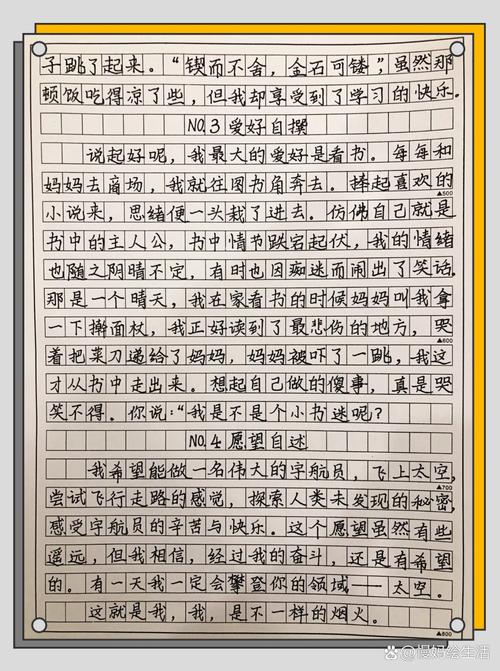 子跳了起来。“锲而不舍，金石可镂”，虽然那
顿饭吃得凉了些，但我却享受到了学习的快乐。
NO.3爱好自撰
说起好呢，我最大的爱好是看书。每每和
妈妈去商场，我就往图书角奔去。捧起喜欢的
▲500
小说来，思绪便一头栽了进去。仿佛自己就是
书中的主人公，书中情节跌宕起伏，我的情绪
也随之阴晴不定，有时也因痴迷而闹出了笑话。
那是一个晴天，我在家看书的时候妈妈叫我拿
一下擀面杖，我正好读到了最悲伤的地方，哭
▲600
着把菜刀递给了妈妈，妈妈被吓了一跳，我这
才从书中走出来。想起自己做的傻事，真是哭
笑不得。你说：“我是不是个小书迷呢？
NO.4愿望自述
我希望能做一名伟大的宇航员，飞上太空，
▲700
尝试飞行走路的感觉，探索人类未发现的秘密，
感受宇航员的辛苦与快乐。这个愿望虽然有些
遥远，但我相信，经过我的奋斗，还是有希望
的。有一天我一定会攀登你的领域——太空。
这就是我，我，是不一样的烟火。
▲800
慢妈绘生活